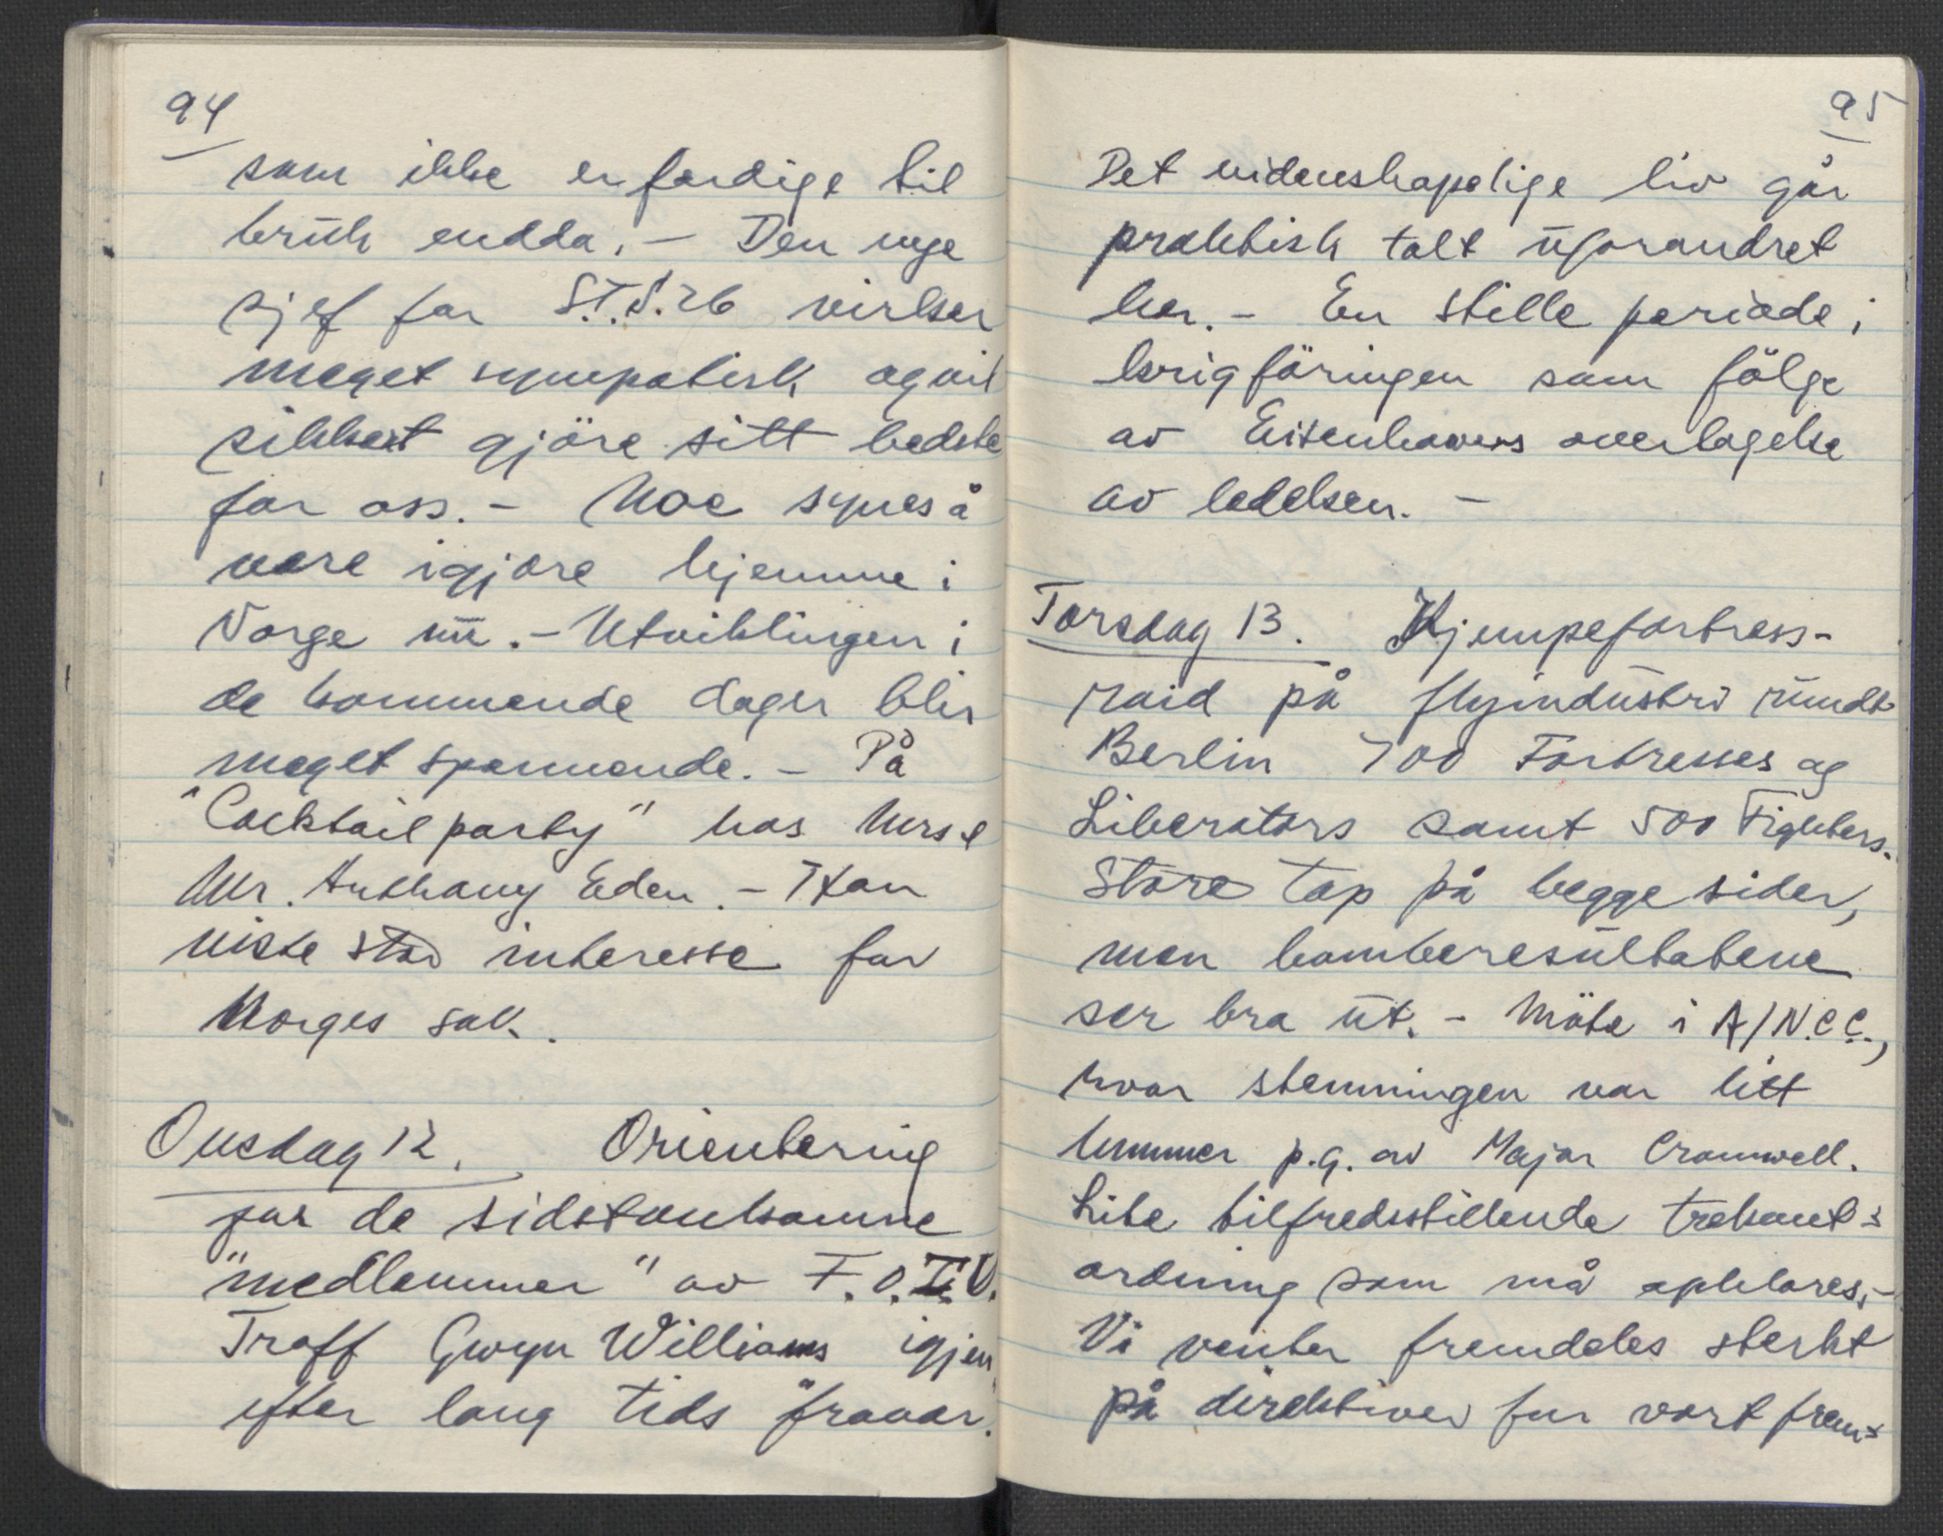 94
som ikke er færdige til
bruk endda. - Den nye
sjef for S.T.S. 26 virker
meget sympatisk og vil
sikkert gjöre sitt bedste
for oss. - Noe synes å
være igjære hjemme i
Norge nu. - Utviklingen i
de kommende dager blir
meget spennende. - På
"Cocktailparty" hos Mrs &
Mr. Anthony Eden. - Han
viste stor interesse for
Norges sak.
Onsdag 12. Orientering
for de sidstankomne
"medlemmer" av F.O.IV.
Traff Gwyn Williams igjen
efter lang tids fravær.
95
Det videnskapelige liv går
praktisk talt uforandret
her. - En stille periode i
krigföringen som fölge
av Eisenhowers overtagelse
av ledelsen. -
Torsdag 13. Kjempefortress-
raid på flyindustri rundt
Berlin 700 Fortresses og
Liberators samt 500 Fighters.
Store tap på begge sider,
men bomberesultatene
ser bra ut. - Möte i A/N.C.C.,
hvor stemningen var litt
lummer p.g. av Major Cromwell.
Lite tilfredsstillende trekant-
ordning som må opklares. -
Vi venter fremdeles sterkt
på direktiver for vort frem-